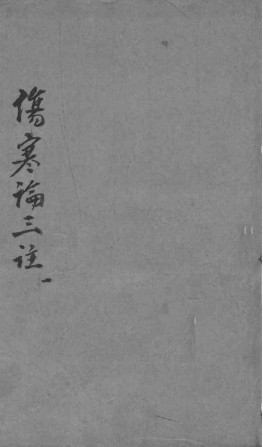 傷寒論三註一